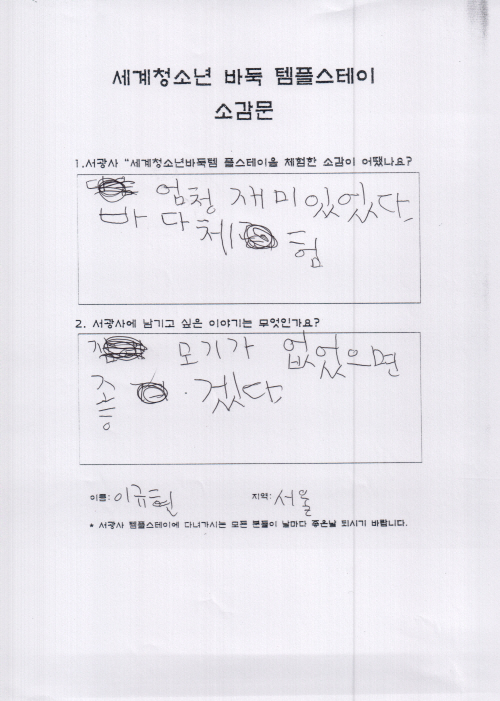 세계청소년 바둑 템플스테이
소감문
1.서광사 "세계청소년바둑템 플스테이을 체험한 소감이 어땠나요?
엄청 재미있었다.
바다체험
2. 서광사에 남기고 싶은 이야기는 무엇인가요?
모기가 없었으면
좋겠다.
이름: 이규현 지역: 서울
* 서광사 템플스테이에 다녀가시는 모든 분들이 날마다 좋은날 되시기 바랍니다.